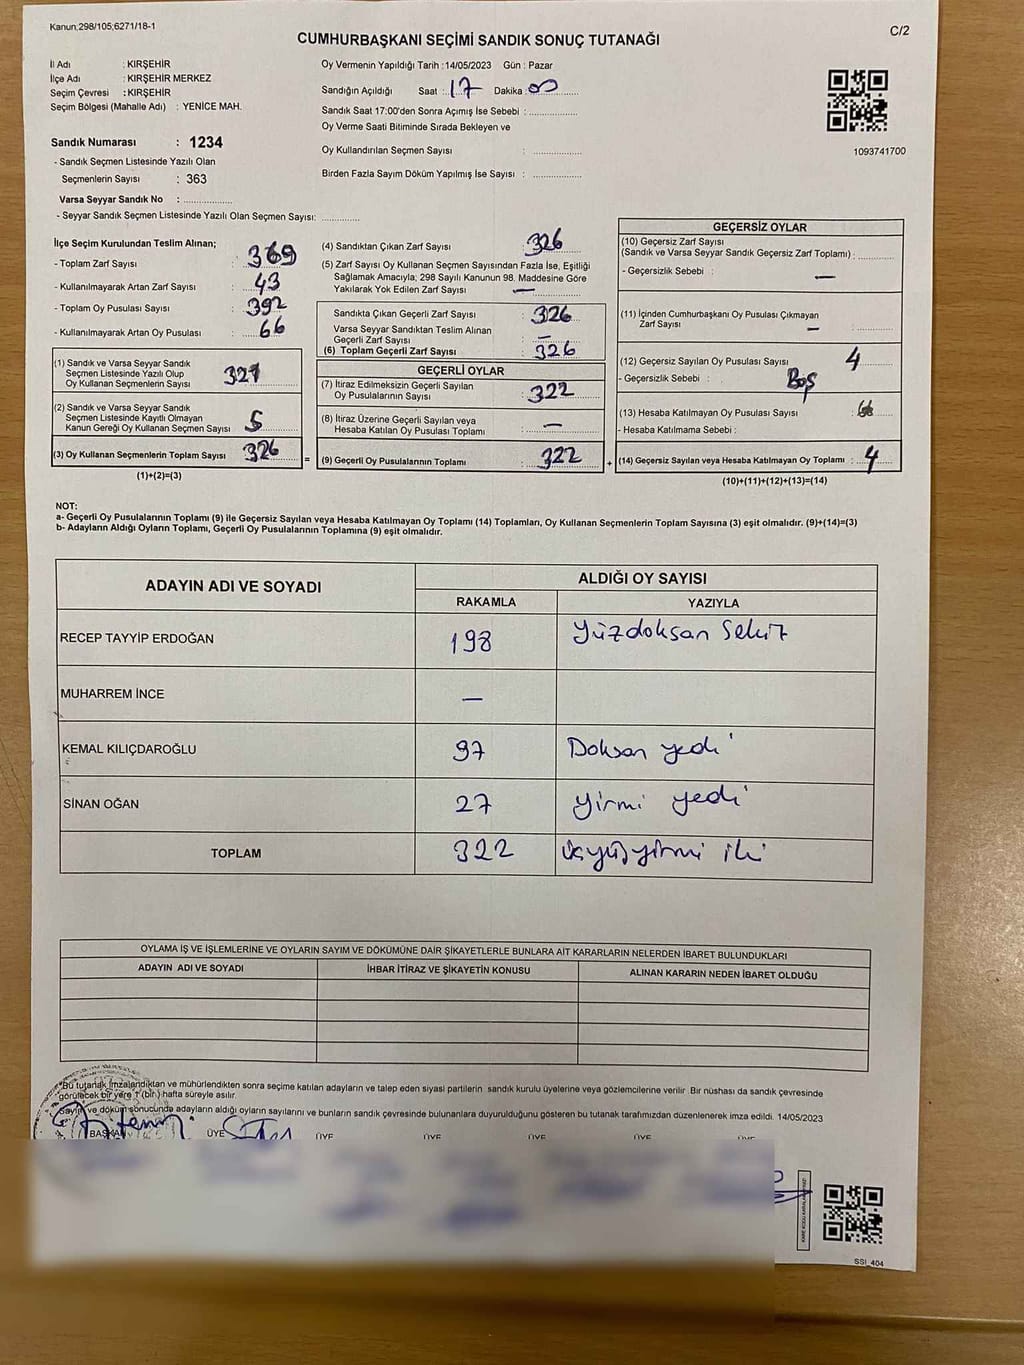 Kanun;298/105;6271/18-1
C/2
CUMHURBAŞKANI SEÇİMİ SANDIK SONUÇ TUTANAĞI
İl Adı : KIRŞEHİR
İlçe Adı : KIRŞEHİR MERKEZ
Seçim Çevresi : KIRŞEHİR
Seçim Bölgesi (Mahalle Adı) : YENİCE MAH.
Sandık Numarası : 1234
- Sandık Seçmen Listesinde Yazılı Olan
Seçmenlerin Sayısı : 363
Varsa Seyyar Sandık No :
- Seyyar Sandık Seçmen Listesinde Yazılı Olan Seçmen Sayısı:
Oy Vermenin Yapıldığı Tarih :14/05/2023 Gün : Pazar
Sandığın Açıldığı Saat : 17 Dakika : 00
Sandık Saat 17:00'den Sonra Açımış İse Sebebi :
Oy Verme Saati Bitiminde Sırada Bekleyen ve
Oy Kullandırılan Seçmen Sayısı :
Birden Fazla Sayım Döküm Yapılmış İse Sayısı :
1093741700
İlçe Seçim Kurulundan Teslim Alınan;
- Toplam Zarf Sayısı : 369
- Kullanılmayarak Artan Zarf Sayısı : 43
- Toplam Oy Pusulası Sayısı : 392
- Kullanılmayarak Artan Oy Pusulası : 66
(1) Sandık ve Varsa Seyyar Sandık
Seçmen Listesinde Yazılı Olup
Oy Kullanan Seçmenlerin Sayısı 321
(2) Sandık ve Varsa Seyyar Sandık
Seçmen Listesinde Kayıtlı Olmayan
Kanun Gereği Oy Kullanan Seçmen Sayısı 5
(3) Oy Kullanan Seçmenlerin Toplam Sayısı 326
(1)+(2)=(3)
(4) Sandıktan Çıkan Zarf Sayısı : 326
(5) Zarf Sayısı Oy Kullanan Seçmen Sayısından Fazla İse, Eşitliği
Sağlamak Amacıyla; 298 Sayılı Kanunun 98. Maddesine Göre
Yakılarak Yok Edilen Zarf Sayısı : —
Sandıkta Çıkan Geçerli Zarf Sayısı : 326
Varsa Seyyar Sandıktan Teslim Alınan
Geçerli Zarf Sayısı : —
(6) Toplam Geçerli Zarf Sayısı : 326
GEÇERLİ OYLAR
(7) İtiraz Edilmeksizin Geçerli Sayılan
Oy Pusulalarının Sayısı : 322
(8) İtiraz Üzerine Geçerli Sayılan veya
Hesaba Katılan Oy Pusulası Toplamı : —
= (9) Geçerli Oy Pusulalarının Toplamı : 322 +
GEÇERSİZ OYLAR
(10) Geçersiz Zarf Sayısı
(Sandık ve Varsa Seyyar Sandık Geçersiz Zarf Toplamı) :
- Geçersizlik Sebebi : —
(11) İçinden Cumhurbaşkanı Oy Pusulası Çıkmayan
Zarf Sayısı — :
(12) Geçersiz Sayılan Oy Pusulası Sayısı : 4
- Geçersizlik Sebebi : Boş
(13) Hesaba Katılmayan Oy Pusulası Sayısı :
- Hesaba Katılmama Sebebi :
(14) Geçersiz Sayılan veya Hesaba Katılmayan Oy Toplamı : 4
(10)+(11)+(12)+(13)=(14)
NOT:
a- Geçerli Oy Pusulalarının Toplamı (9) ile Geçersiz Sayılan veya Hesaba Katılmayan Oy Toplamı (14) Toplamları, Oy Kullanan Seçmenlerin Toplam Sayısına (3) eşit olmalıdır. (9)+(14)=(3)
b- Adayların Aldığı Oyların Toplamı, Geçerli Oy Pusulalarının Toplamına (9) eşit olmalıdır.
ADAYIN ADI VE SOYADI
ALDIĞI OY SAYISI
RAKAMLA YAZIYLA
RECEP TAYYİP ERDOĞAN 198 Yüzdoksan Sekiz
MUHARREM İNCE —
KEMAL KILIÇDAROĞLU 97 Doksan yedi
SİNAN OĞAN 27 Yirmi yedi
TOPLAM 322 üçyüzyirmi iki
OYLAMA İŞ VE İŞLEMLERİNE VE OYLARIN SAYIM VE DÖKÜMÜNE DAİR ŞİKAYETLERLE BUNLARA AİT KARARLARIN NELERDEN İBARET BULUNDUKLARI
ADAYIN ADI VE SOYADI İHBAR İTİRAZ VE ŞİKAYETİN KONUSU ALINAN KARARIN NEDEN İBARET OLDUĞU
Bu tutanak imzalandıktan ve mühürlendikten sonra seçime katılan adayların ve talep eden siyasi partilerin sandık kurulu üyelerine veya gözlemcilerine verilir. Bir nüshası da sandık çevresinde
görülecek bir yere 1 (bir) hafta süreyle asılır.
Sayım ve döküm sonucunda adayların aldığı oyların sayılarını ve bunların sandık çevresinde bulunanlara duyurulduğunu gösteren bu tutanak tarafımızdan düzenlenerek imza edildi. 14/05/2023
BAŞKAN ÜYE ÜYE ÜYE ÜYE ÜYE ÜYE
SSI_404